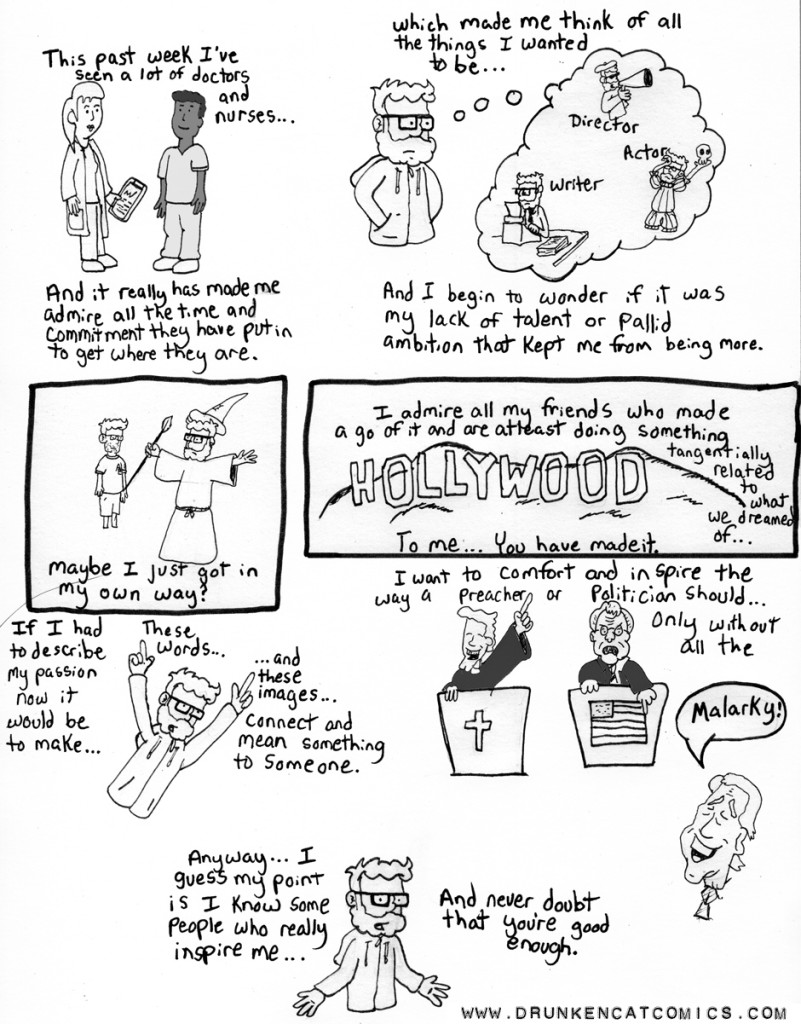 This past week I've
seen a lot of doctors
and
nurses...
which made me think of all
the things I wanted
to be...
Director
Actor
Writer
And it really has made me
admire all the time and
commitment they have put in
to get where they are.
And I begin to wonder if it was
my lack of talent or Pallid
ambition that kept me from being more.
maybe I just got in
my own way?
I admire all my friends who made
a go of it and are atleast doing something
tangentially
related
to
what
we dreamed
of...
HOLLYWOOD
To me... You have made it.
If I had
to describe
my passion
now it
would be
to make...
These
words...
...and
these
images...
Connect and
mean something
to someone.
I want to comfort and inspire the
way a Preacher or Politician should...
Only without
all the
Malarky!
Anyway... I
guess my point
is I know some
People who really
inspire me...
And never doubt
that you're good
enough.
WWW.DRUNKENCATCOMICS.COM